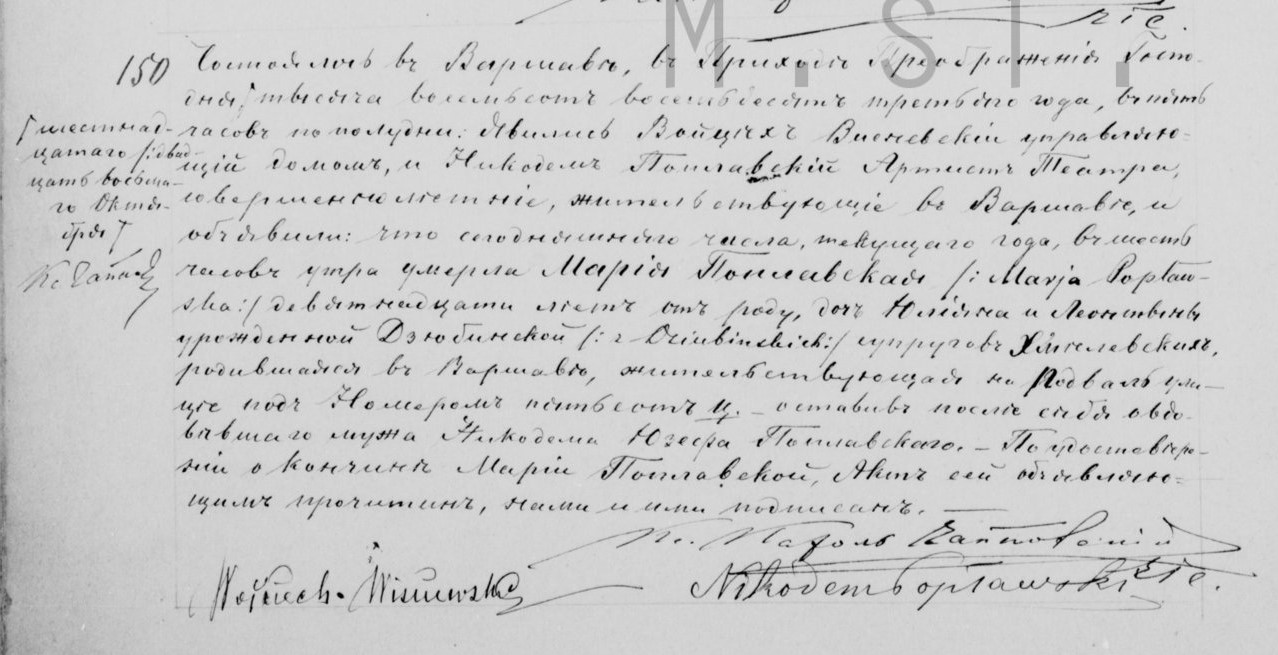 M. S I .
ксіе.
150
Состоялось въ Варшавѣ, въ Приходѣ Преображенія Госпо-
дня Г тысяча восемьсотъ восемьдесятъ третьяго года, въ пять
часовъ пополудни: Явились Войцѣхъ Висневскій управляю-
щій домомъ, и Никодемъ Поплавскій Артистъ Театра,
совершеннолѣтніе, жительствующіе въ Варшавѣ, и
объявили: что сегодняшняго числа, текущаго года, въ шесть
часовъ утра умерла Марія Поплавская /: Marja Popław-
ska :/ девятнадцати лѣтъ отъ роду, дочь Юліяна и Леонтины
урожденной Дзюбинской /: z Dziubinskich :/ супруговъ Хмѣлевскихъ,
родившаяся въ Варшавѣ, жительствующая на Подваль ули-
цѣ подъ Номеромъ пятьсотъ ц. – оставивъ послѣ себя овдо-
вѣвшаго мужа Никодема Юзефа Поплавскаго. – По удостовѣре-
ніи о кончинѣ Маріи Поплавской, Актъ сей объявляю-
щимъ прочитанъ, нами и ими подписанъ. —
Г шестнад-
цатаго /: двад-
цать восьма-
го Октя-
бря Г
Кс.
Кс. Кароль
Wojciech Wisniewski
Nikodem Popławski